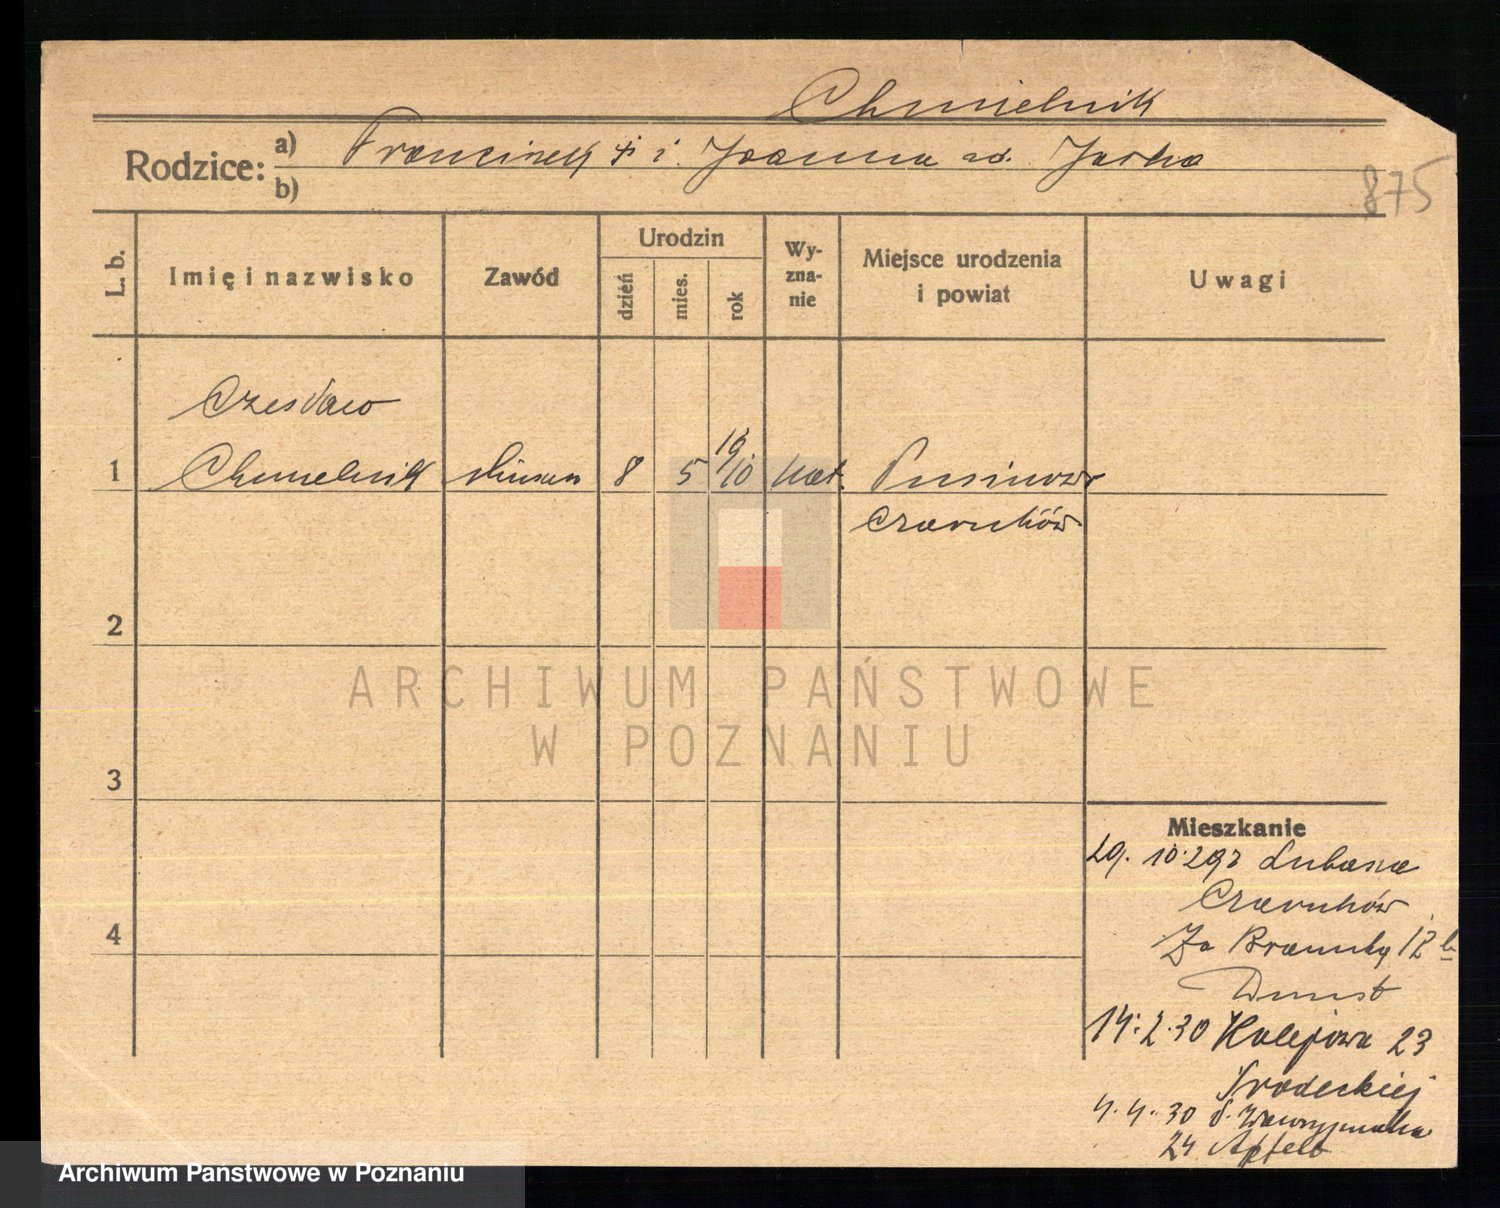 Chmielnik
Rodzice: a) Franciszek † i Joanna zd. Jaśka
b)
875
L. b.
Imię i nazwisko
Zawód
Urodzin
dzień
mies.
rok
Wy-
zna-
nie
Miejsce urodzenia
i powiat
Uwagi
Czesław
1 Chmielnik 8 5 19/10 kat.
Czarnków
2
3
4
ARCHIWUM PAŃSTWOWE
W POZNANIU
Mieszkanie
29. 10. 29 z Lubasza
Czarnków
Za Bramką 12 b
14. 2. 30 Kolejowa 23
4. 4. 30 d. Wawrzyniaka
24
Archiwum Państwowe w Poznaniu